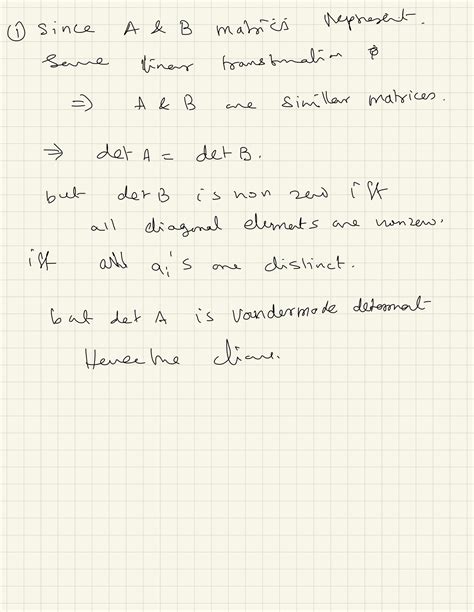 ① Since A & B matrics represent.
Same linear transformation φ
⇒ A & B are Similar matrices.
⇒ det A = det B.
but det B is non zero iff
all diagonal elements are nonzero.
iff all ai's are distinct.
but det A is Vandermode determont
Hence the